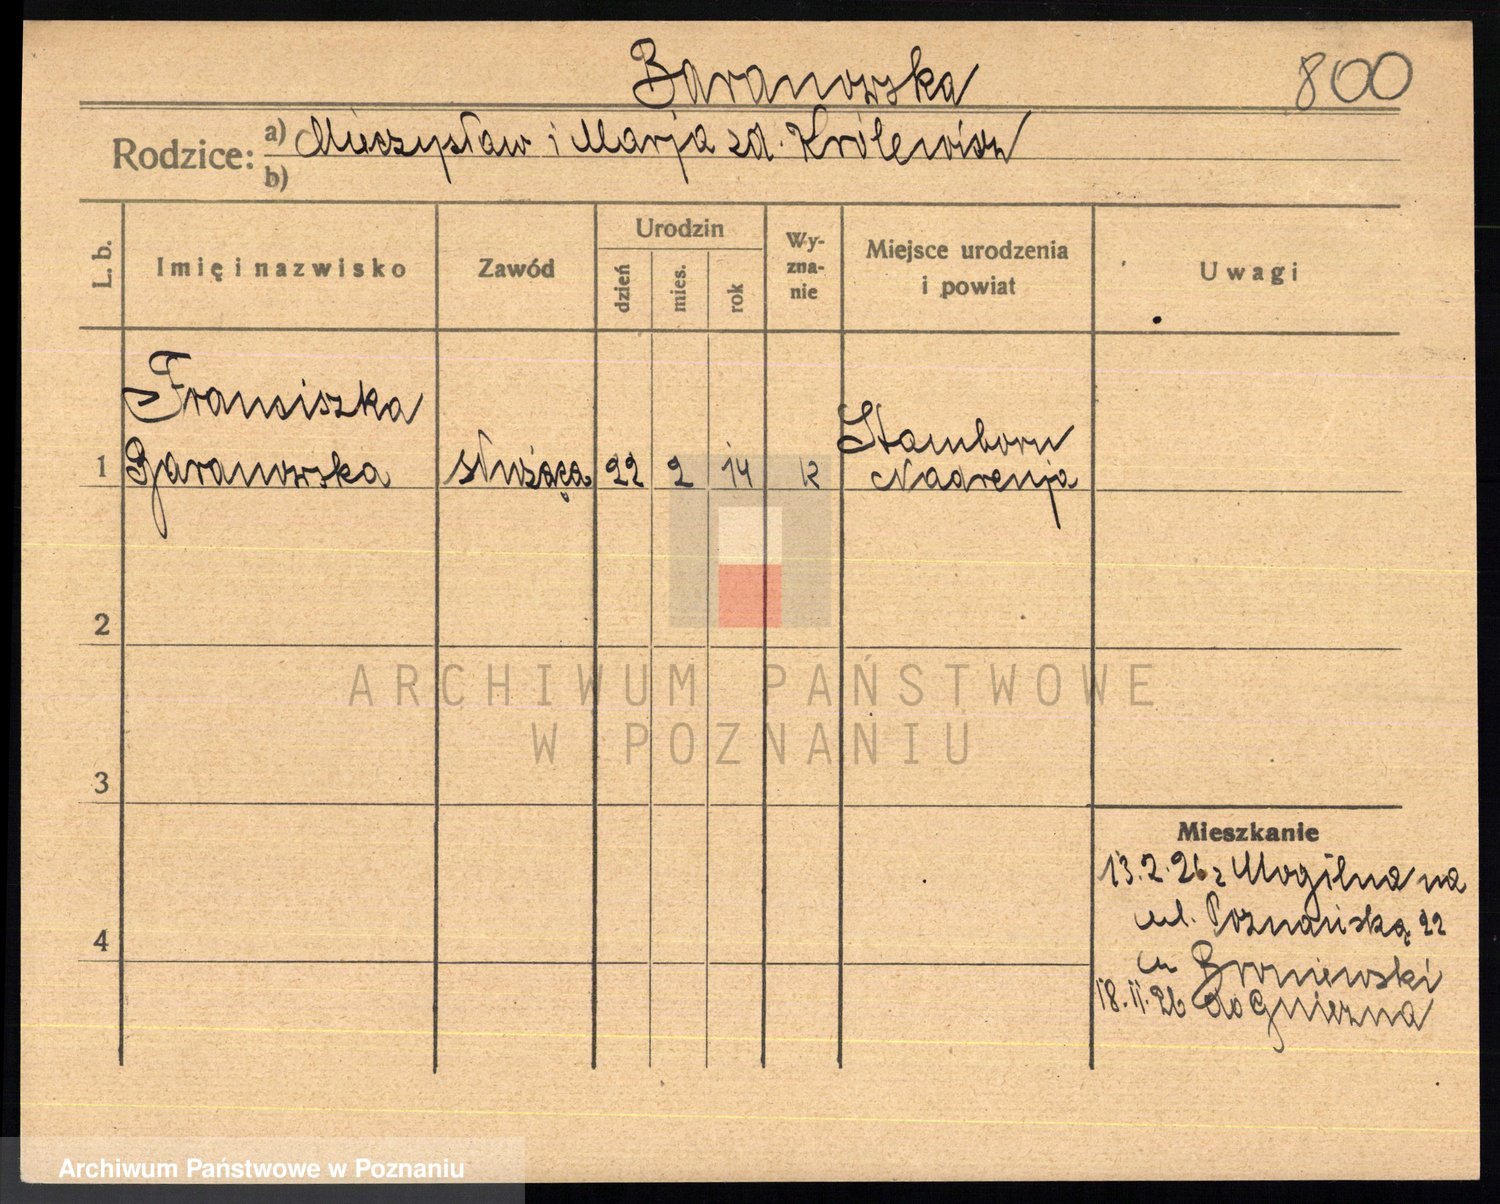 Baranowska
800
Rodzice: a) Mieczysław i Marja zd. Królewicz
b)
L. b.
Imię i nazwisko
Zawód
Urodzin
dzień
mies.
rok
Wy-
zna-
nie
Miejsce urodzenia
i powiat
Uwagi
Franciszka
1 Baranowska służąca 22 2 14 k
Hamborn
Nadrenja
2
3
4
ARCHIWUM PAŃSTWOWE
W POZNANIU
Mieszkanie
13.2.26 z Mogilna na
ul. Poznańską 22
u Broniewski
18.II.26 do Gniezna
Archiwum Państwowe w Poznaniu